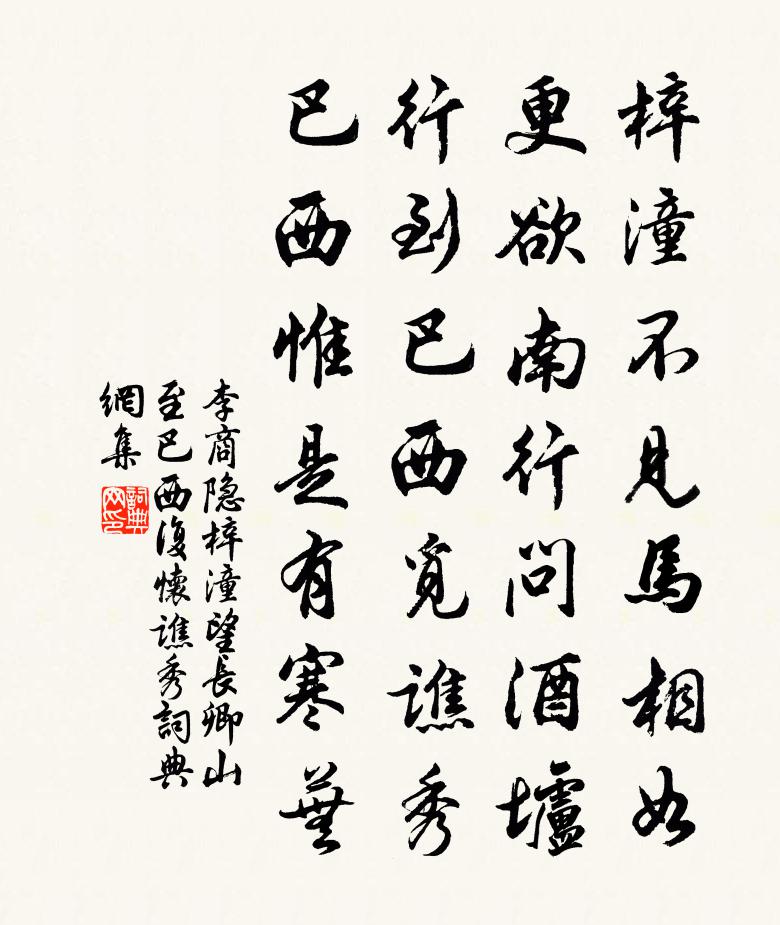 梓潼不見馬相如
更欲南行問酒壚
行到巴西覓譙秀
巴西惟是有寒蕪
李商隐梓潼望長卿山
至巴西復懷譙秀詞典
網集
詞典
网印